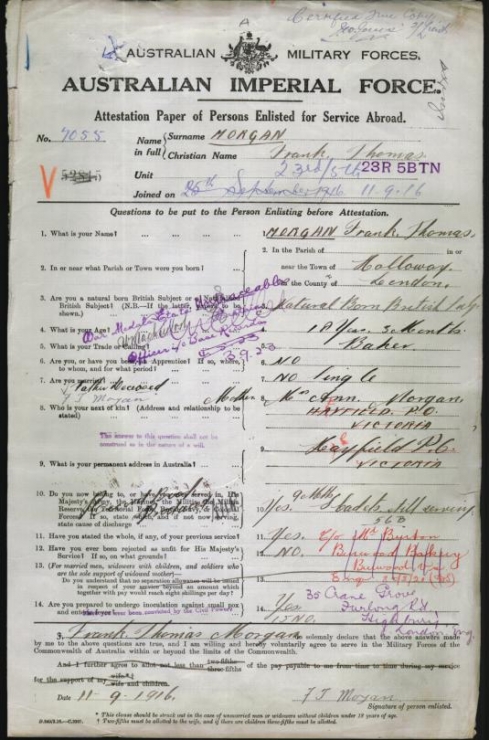 Certified True Copy
AUSTRALIAN MILITARY FORCES.
AUSTRALIAN IMPERIAL FORCE.
Attestation Paper of Persons Enlisted for Service Abroad.
No. 7055 Name in full { Surname MORGAN
Christian Name Frank Thomas.
V Unit 23rd/5th 23R 5BTN
Joined on September 1916 11-9-16
Questions to be put to the Person Enlisting before Attestation.
1. What is your Name? ... 1. MORGAN Frank Thomas.
2. In or near what Parish or Town were you born? ... 2. In the Parish of in or
near the Town of Holloway
in the County of London.
3. Are you a natural born British Subject or a Naturalized
British Subject? (N.B.—If the latter, to be
shown.) 3. Natural Born British
4. What is your Age? 4. 18 Yrs. 3 Months.
5. What is your Trade or Calling? 5. Baker
6. Are you, or have you been an Apprentice? If so, where,
to whom, and for what period? 6. NO
3.9.20
7. Are you married? 7. NO Single
Father Deceased
F J Morgan Mother
8. Who is your next of kin? (Address and relationship to be
stated) 8. Mrs Ann Morgan,
HAYFIELD P.O.
VICTORIA
The answer to this question shall not be
construed as in the nature of a will.
9. What is your permanent address in Australia? 9. Hayfield P.O.
VICTORIA
10. Do you now belong to, or have you ever served in, His
Majesty's Army, the Marines, the Militia, the Militia
Reserve, the Territorial Force, Royal Navy, or Colonial
Forces? If so, state which, and if not now serving,
state cause of discharge 10. Yes. 9 Mths Cadets still serving
56B
11. Have you stated the whole, if any, of your previous service? 11. Yes.
12. Have you ever been rejected as unfit for His Majesty's
Service? If so, on what grounds? 12. NO.
c/o Mr Burton
Burwood Bakery
Burwood
13. (For married men, widowers with children, and soldiers who
are the sole support of widowed mother)—
Do you understand that no separation allowance will be issued
in respect of your service beyond an amount which
together with pay would reach eight shillings per day? 13.
35 Crane Grove
Furlong Rd
Highbury
London Eng
14. Are you prepared to undergo inoculation against small pox
and enteric fever? 14. Yes
Have you ever been convicted by the Civil Power? 15. NO.
I, Frank Thomas Morgan solemnly declare that the above answers made
by me to the above questions are true, and I am willing and hereby voluntarily agree to serve in the Military Forces of the
Commonwealth of Australia within or beyond the limits of the Commonwealth.
And I further agree to allot not less than two-fifths three-fifths of the pay payable to me from time to time during my service
for the support of my wife wife and children.
Date 11-9-1916. F J Morgan
Signature of person enlisted.
* This clause should be struck out in the case of unmarried men or widowers without children under 18 years of age.
† Two-fifths must be allotted to the wife, and if there are children three-fifths must be allotted.